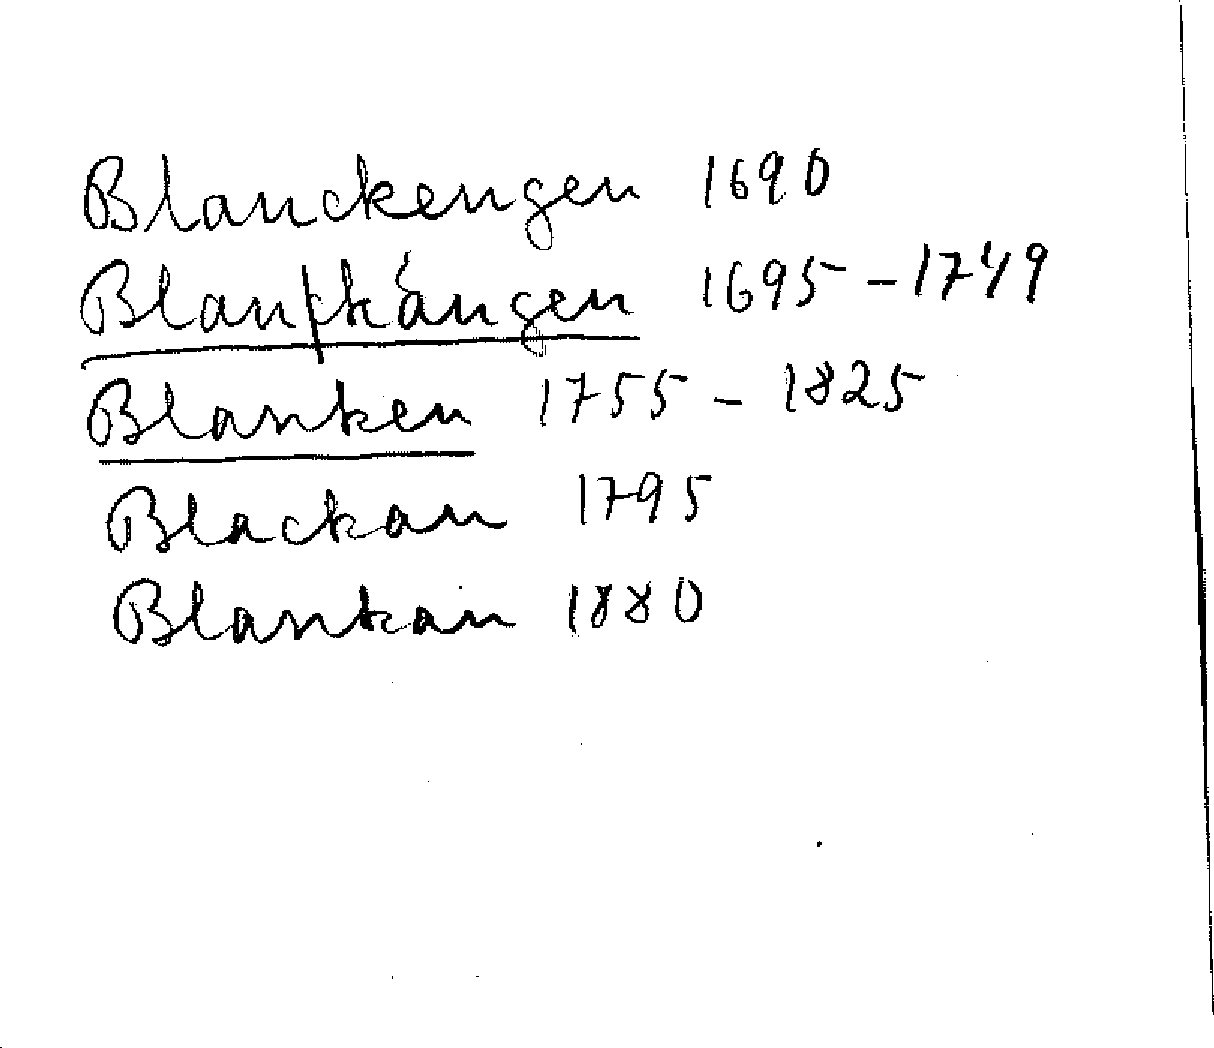 Blanckengen 1690
Blankángen 1695-1749
Blanken 1755 - 1825
Blackan 1795
Blankan 1880